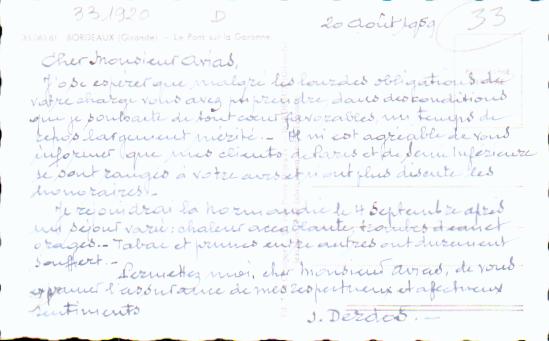 33.1920 D 20 août 1959 33
BORDEAUX (Gironde) - Le Pont sur la Garonne
Cher Monsieur Arias,
J'ose espérer que malgré les lourdes obligations de
votre charge vous avez pu prendre dans des conditions
que je souhaite de tout cœur favorables un temps de
repos largement mérité. - Il m'est agréable de vous
informer que mes clients de Paris et de Seine Inférieure
se sont rangés à votre avis et n'ont plus discuté les
honoraires. -
Je rejoindrai la Normandie le 4 Septembre après
un séjour varié: chaleur accablante, trombes d'eau et
orages. - Tabac et prunes entre autres ont durement
souffert. -
Permettez moi, cher Monsieur Arias, de vous
exprimer l'assurance de mes respectueux et affectueux
sentiments
J. Derdos. -